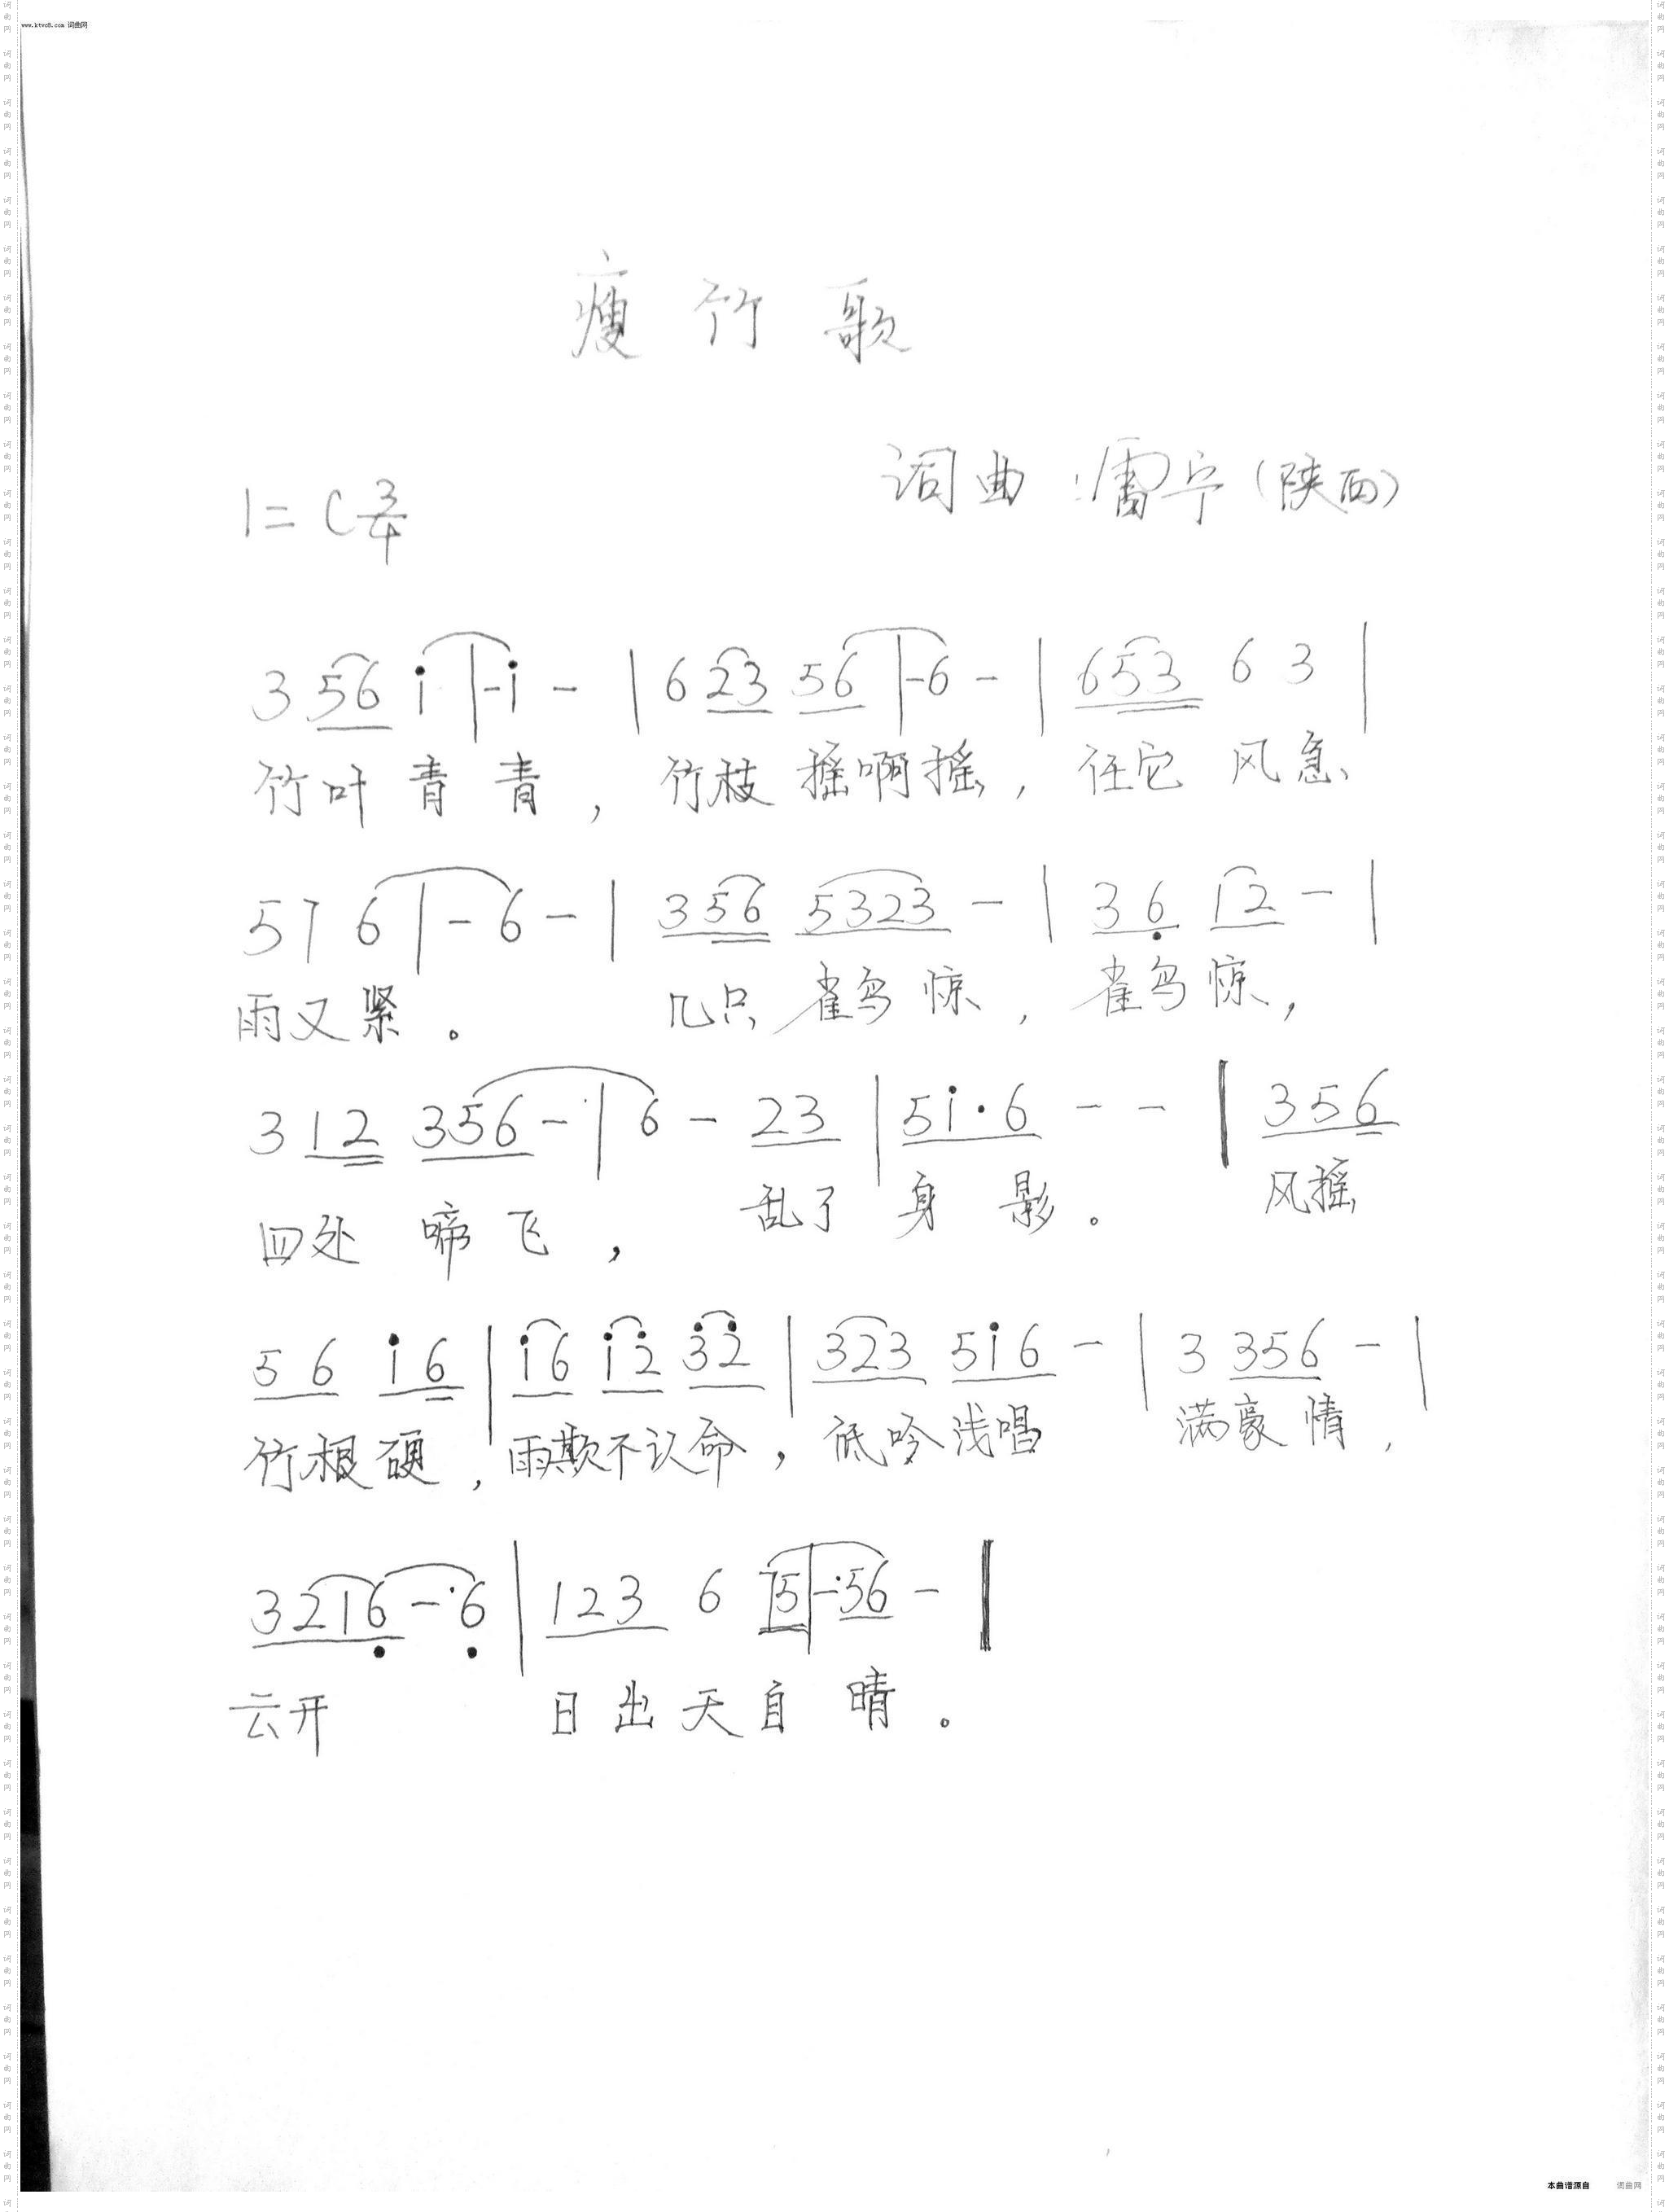 www.ktvc8.com 词曲网
瘦竹歌
词曲:雷宁(陕西)
1=C 3/4
3 56 i |-i - | 6 23 56 |-6 - | 653 6 3 |
竹叶青青, 竹枝摇啊摇, 任它 风急
57 6 |- 6 - | 356 5323 - | 36 12 - |
雨又紧。 几只 雀鸟惊, 雀鸟惊,
3 12 356 - | 6 - 23 | 5i·6 - - | 356
四处 啼飞, 乱了 身 影。 风摇
56 i6 | i6 i2 32 | 323 5i6 - | 3 356 - |
竹根硬, 雨欺不认命, 低吟浅唱 满豪情,
3216 - 6 | 123 6 75|-56 - |
云开 日出天自晴。
本曲谱源自 词曲网